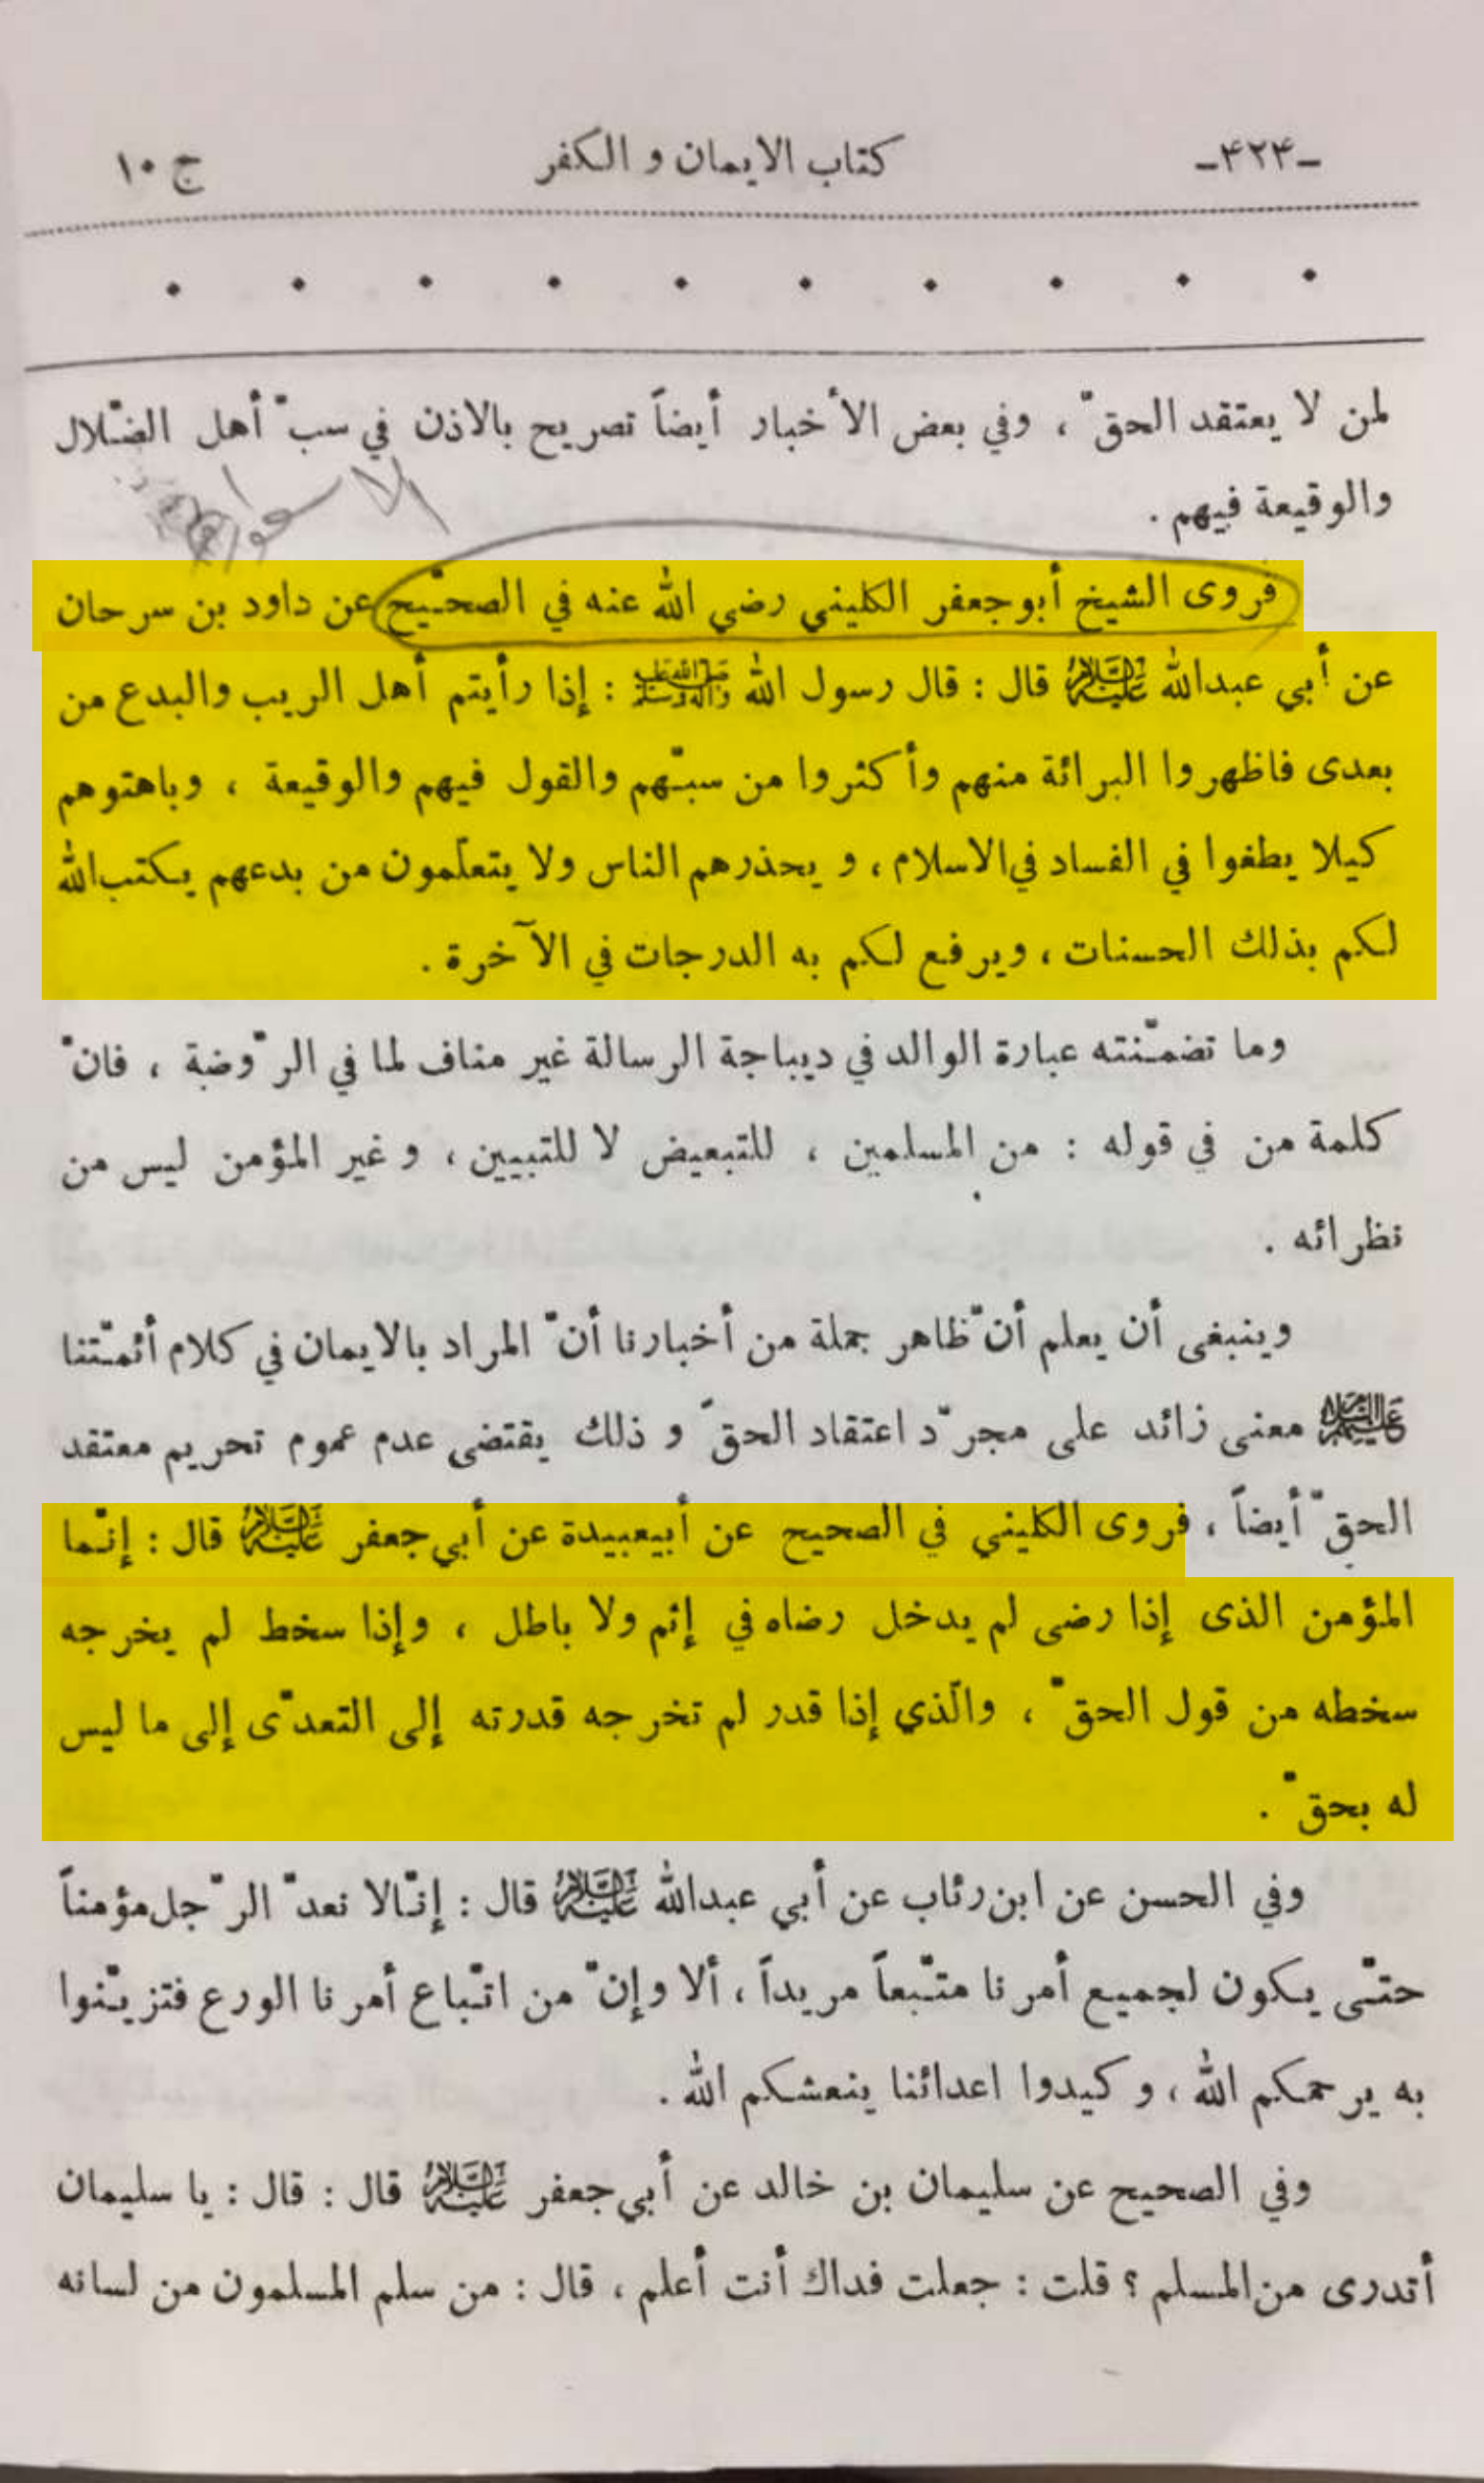 -۴۲۴- كتاب الايمان و الكفر ج ١٠
لمن لا يعتقد الحقّ ، وفي بعض الأخبار أيضاً تصريح بالاذن في سبّ أهل الضّلال
والوقيعة فيهم .
فروى الشيخ أبو جعفر الكليني رضي الله عنه في الصحّيح عن داود بن سرحان
عن أبي عبدالله عليه السلام قال : قال رسول الله صلى الله عليه وآله وسلم : إذا رأيتم أهل الريب والبدع من
بعدى فاظهروا البرائة منهم وأكثروا من سبّهم والقول فيهم والوقيعة ، وباهتوهم
كيلا يطغوا في الفساد في الاسلام ، و يحذرهم الناس ولا يتعلّمون من بدعهم يكتب الله
لكم بذلك الحسنات ، ويرفع لكم به الدرجات في الآخرة .
وما تضمّنته عبارة الوالد في ديباجة الرسالة غير مناف لما في الرّوضة ، فانّ
كلمة من في قوله : من المسلمين ، للتبعيض لا للتبيين ، و غير المؤمن ليس من
نظرائه .
وينبغى أن يعلم أنّ ظاهر جملة من أخبارنا أنّ المراد بالايمان في كلام أئمّتنا
عليهم السلام معنى زائد على مجرّد اعتقاد الحقّ و ذلك يقتضى عدم عموم تحريم معتقد
الحقّ أيضاً ، فروى الكليني في الصحيح عن أبيعبيدة عن أبي جعفر عليه السلام قال : إنّما
المؤمن الذى إذا رضى لم يدخل رضاه في إثم ولا باطل ، وإذا سخط لم يخرجه
سخطه من قول الحقّ ، والّذي إذا قدر لم تخرجه قدرته إلى التعدّى إلى ما ليس
له بحقّ .
وفي الحسن عن ابن رئاب عن أبي عبدالله عليه السلام قال : إنّا لا نعدّ الرّجل مؤمناً
حتّى يكون لجميع أمرنا متّبعاً مريداً ، ألا وإنّ من اتّباع أمرنا الورع فتزيّنوا
به يرحمكم الله ، و كيدوا اعدائنا ينعشكم الله .
وفي الصحيح عن سليمان بن خالد عن أبي جعفر عليه السلام قال : قال : يا سليمان
أتدرى من المسلم ؟ قلت : جعلت فداك أنت أعلم ، قال : من سلم المسلمون من لسانه